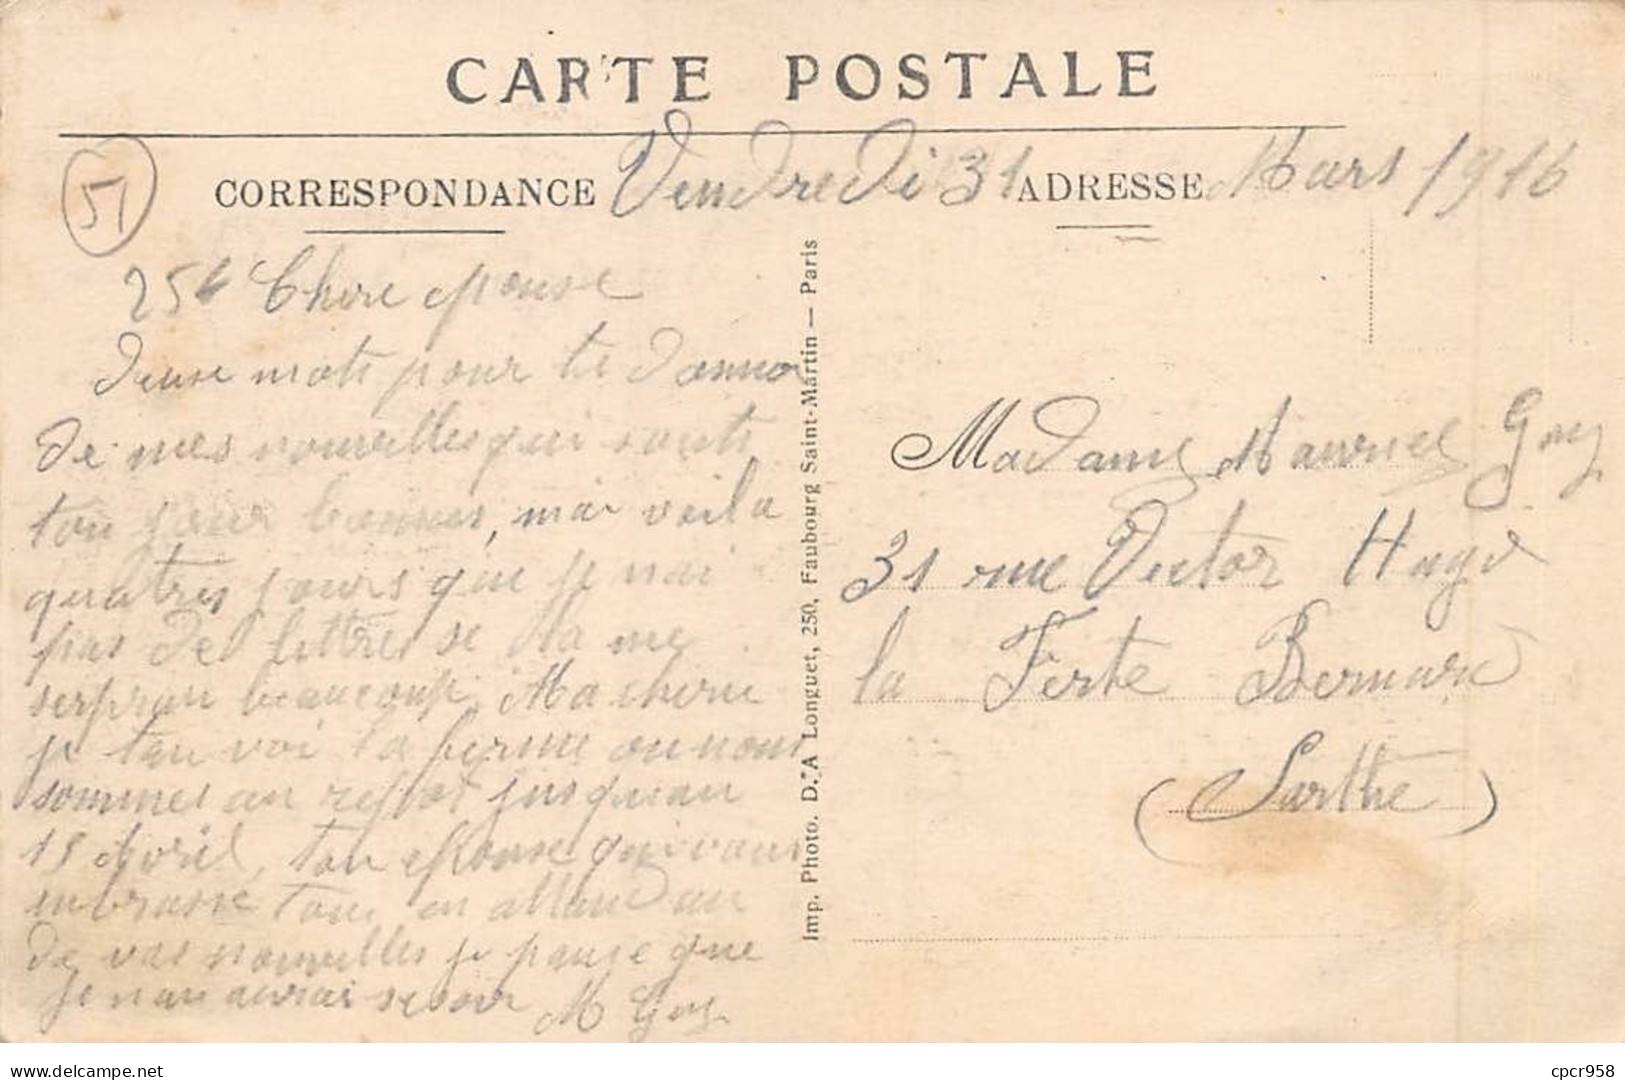 CARTE POSTALE
51
CORRESPONDANCE
Vendredi 31 Mars 1916
ADRESSE
25 Chere epouse
Deuse mots pour te donner
de mes nouvelles qui sonts
tou jour bonnes, mai voila
quatres jours que je nai
pas de lettres se la me
serpran beaucoup. Ma cherie
je tan voi la ferme ou nous
sommes au repot jusqueau
15 Avril, ton epouse qui vous
mbrasse tous en attandan
de vos nouvelles je panse que
je nan aurai se soir M Guy
Imp. Photo. D. A Longuet, 250, Faubourg Saint-Martin — Paris
Madame Maurice Guy
31 rue Victor Hugo
la Ferte Bernard
(Sarthe)
Website : https://www.delcampe.net
cpcr958